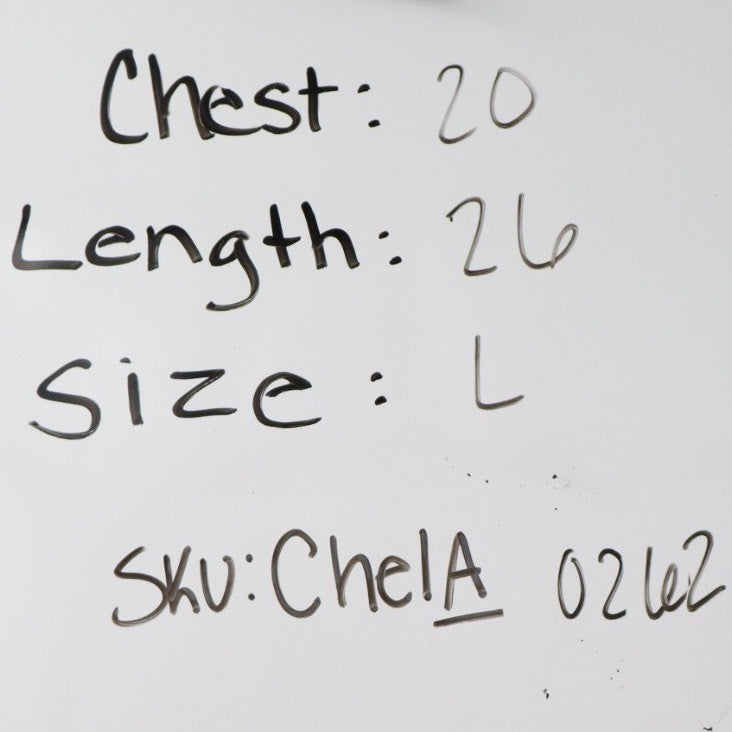 Chest: 20
Length: 26
Size: L
SKU: ChelA 0262